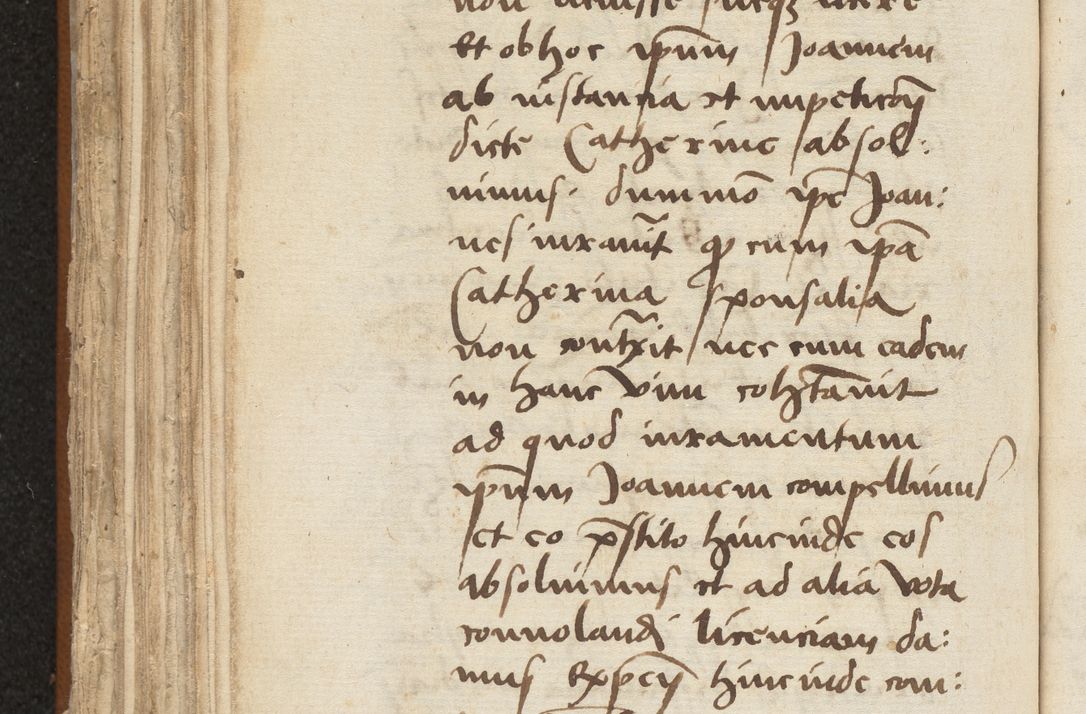 non
Et ob hoc ipm̄ Joannem
ab instantia et impeticōe
dicte Catherine absol:
uimus. dummō ip̄e Joan:
nes iurauit̄ ꝙ cum ipā
Catherina sponsalia
non contrāxit nec cum eadem
in hanc vim cohītauit
ad quod iuramentum
ipm̄ Joannem compellimus
et eo p̄stito hincinde eos
absoluimus et ad alia vota
conuolandj licenciam da:
mus Exp̄en̄ hincinde com: